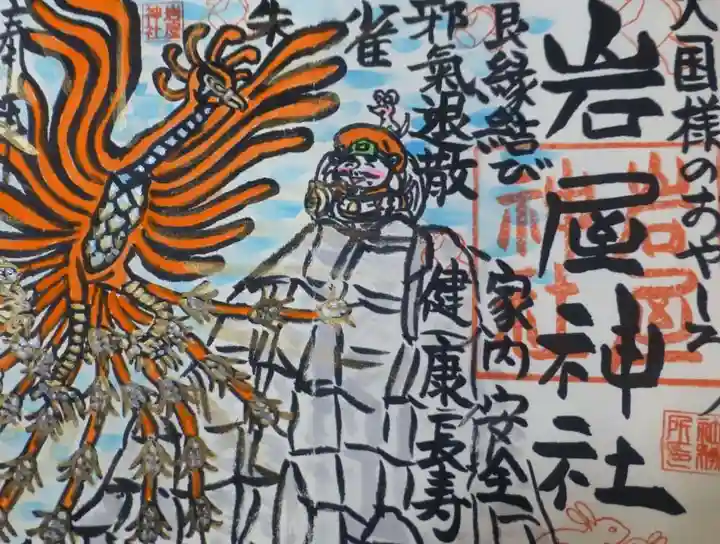 大国様のおやしろ
岩屋神社
良縁結び 家内安全
邪氣退散 健康長寿
朱雀
奉拝
岩屋神社
岩屋神社
社務所